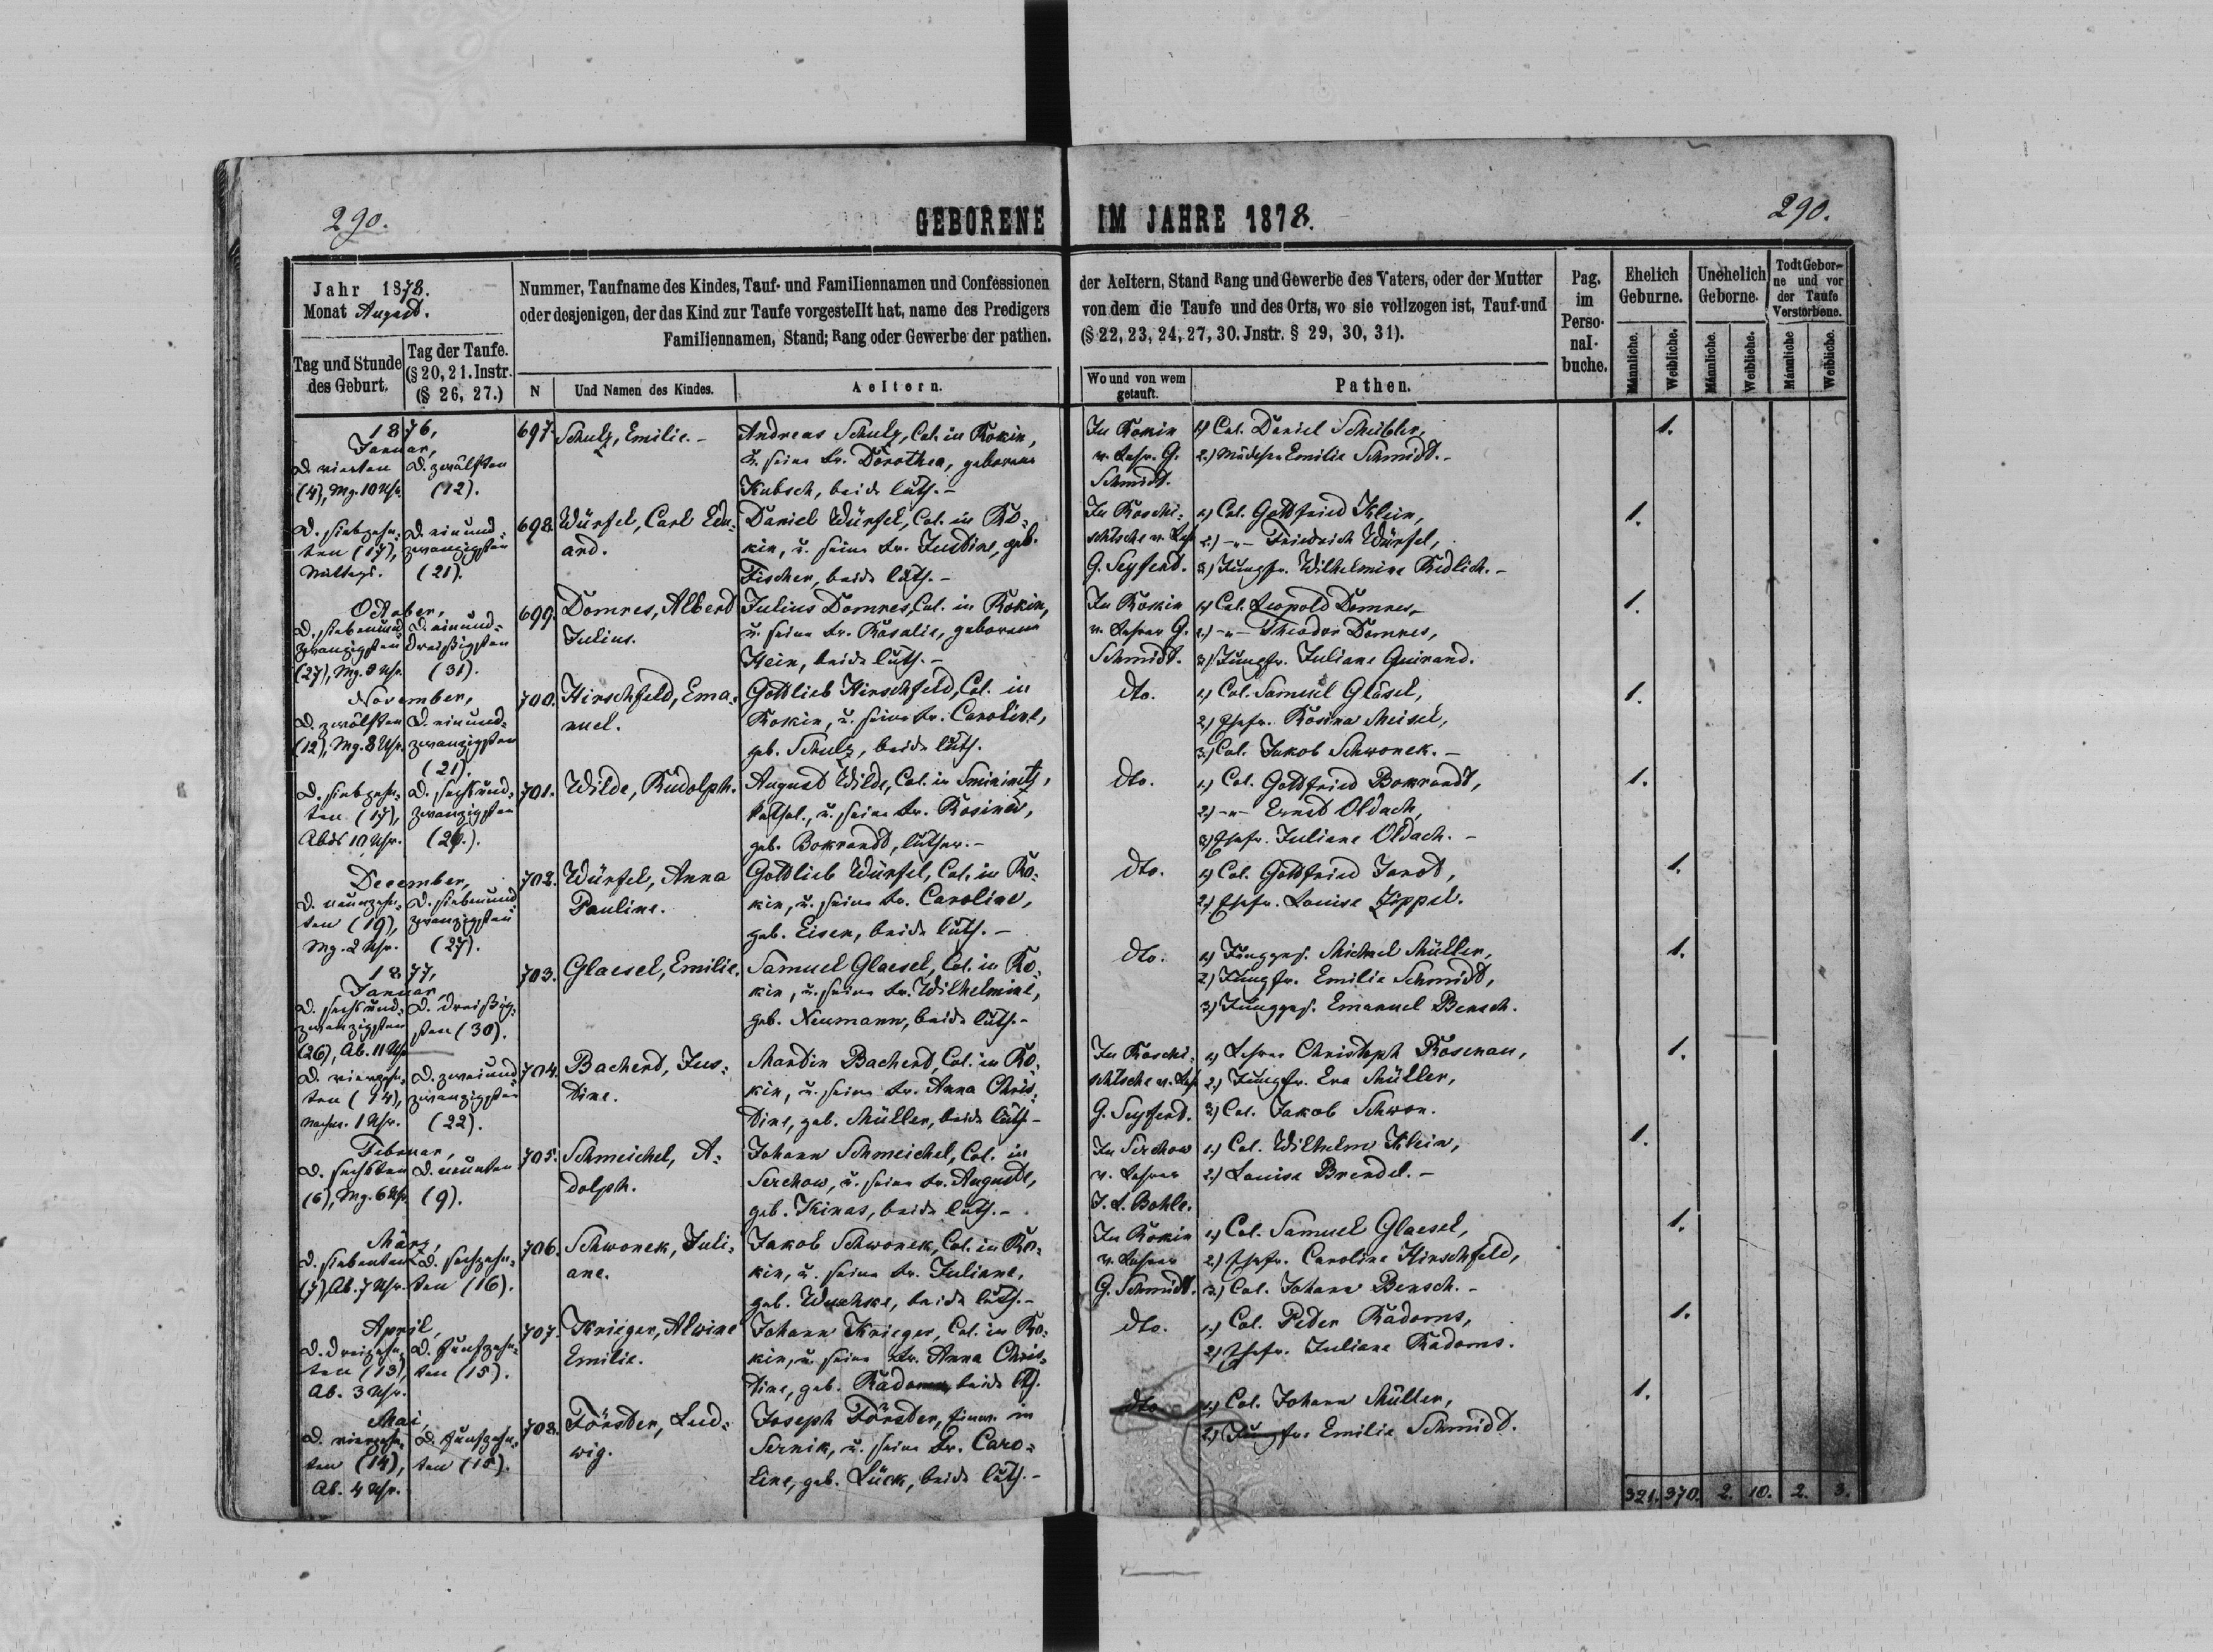 290.
GEBORENE IM JAHRE 1878.
290.
Jahr 1878.
Monat August.
Tag und Stunde
des Geburt.
Tag der Taufe.
(§ 20, 21. Instr.
(§ 26, 27.)
Nummer, Taufname des Kindes, Tauf- und Familiennamen und Confessionen
oder desjenigen, der das Kind zur Taufe vorgestellt hat, name des Predigers
Familiennamen, Stand; Rang oder Gewerbe der pathen.
N
Und Namen des Kindes.
Aeltern.
der Aeltern, Stand Rang und Gewerbe des Vaters, oder der Mutter
von dem die Taufe und des Orts, wo sie vollzogen ist, Tauf-und
(§ 22, 23, 24, 27, 30. Jnstr. § 29, 30, 31).
Wo und von wem
getauft.
Pathen.
Pag.
im
Perso-
nal-
buche.
Ehelich
Geburne.
Unehelich
Geborne.
Todt Gebor-
ne und vor
der Taufe
Verstorbene.
Männliche.
Weibliche.
Männliche.
Weibliche.
Männliche
Weibliche.
1876,
Januar,
D. vierten
(4), Mg. 10 Uhr.
D. zwölften
(12).
697.
Schulz, Emilie. -
Andreas Schulz, Col. in Rokin,
u. seine Fr. Dorothea, geborene
Kubsch, beide luth. -
In Rokin
v. Lehr. G.
Schmidt.
1.) Col. Daniel Scheibler,
2.) Mädchen Emilie Schmidt. -
1.
D. siebzehn-
ten (17),
Mittags.
D. einund-
zwanzigsten
(21).
698.
Würfel, Carl Edu-
ard.
Daniel Würfel, Col. in Ro-
kin, u. seine Fr. Justine, geb.
Fischer, beide luth. -
In Koschi-
schtsche v. Leh.
G. Seyferd.
1.) Col. Gottfried Klein,
2.) -"- Friedrich Würfel,
3.) Jungfr. Wilhelmine Redlich. -
1.
October,
D. siebenund-
zwanzigsten
(27), Mg. 8 Uhr.
D. einund-
dreißigsten
(31).
699.
Domres, Alberd
Julius.
Julius Domres, Col. in Rokin,
u. seine Fr. Rosalie, geborene
Hein, beide luth. -
In Rokin
v. Lehrer G.
Schmidt.
1.) Col. Leopold Domres,
2.) -"- Theodor Domres,
3.) Jungfr. Juliane Quirand.
1.
November,
D. zwölften
(12), Mg. 8 Uhr.
D. einund-
zwanzigsten
(21).
700.
Hirschfeld, Ema-
nuel.
Gottlieb Hirschfeld, Col. in
Rokin, u. seine Fr. Caroline,
geb. Schulz, beide luth.
dto.
1.) Col. Samuel Gläsel,
2.) Ehefr. Rosina Meisel,
3.) Col. Jakob Schwonek. -
1.
D. siebzehn-
ten (17),
Abds 10 Uhr.
D. sechsund-
zwanzigsten
(26.).
701.
Wilde, Rudolph.
August Wilde, Col. in
kathol., u. seine Fr. Rosina,
geb. Bokrandt, luther. -
dto.
1.) Col. Gottfried Bokrandt,
2.) -"- Ernst Oldach,
3.) Ehefr. Juliane Oldach. -
1.
December,
D. neunzehn-
ten (19),
Mg. 2 Uhr.
D. siebenund-
zwanzigsten
(27).
702.
Würfel, Anna
Pauline.
Gottlieb Würfel, Col. in Ro-
kin, u. seine Fr. Caroline,
geb. Eisen, beide luth. -
dto.
1.) Col. Gottfried Jandt,
2.) Ehefr. Louise Zippel.
1.
1877,
Januar,
D. sechsund-
zwanzigsten
(26), Ab. 11 Uhr
D. dreißig-
sten (30).
703.
Glaesel, Emilie.
Samuel Glaesel, Col. in Ro-
kin, u. seine Fr. Wilhelmine,
geb. Neumann, beide luth. -
dto.
1.) Jungges. Michael Müller,
2.) Jungfr. Emilie Schmidt,
3.) Jungges. Emanuel Bensch.
1.
D. vierzehn-
ten (14),
Nachm. 1 Uhr.
D. zweiund-
zwanzigsten
(22).
704.
Bacherd, Jus-
tine.
Martin Bacherd, Col. in Ro-
kin, u. seine Fr. Anna Chris-
tine, geb. Müller, beide luth. -
In Koschi-
schtsche v. Leh.
G. Seyferd.
1.) Lehrer Christoph Rosenau,
2.) Jungfr. Eva Müller,
3.) Col. Jakob Schwon.
1.
Februar,
D. sechsten
(6), Mg. 6 Uhr.
D. neunten
(9).
705.
Schmeichel, A-
dolph.
Johann Schmeichel, Col. in
Serchow, u. seine Fr. Auguste,
geb. Kinas, beide luth. -
In Serchow
v. Lehrer
J. L. Bohle.
1.) Col. Wilhelm Klein,
2.) Louise Brendel. -
1.
März,
D. siebenten
(7), Ab. 7 Uhr.
D. sechzehn-
ten (16).
706.
Schwonek, Juli-
ane.
Jakob Schwonek, Col. in Ro-
kin, u. seine Fr. Juliane,
geb. Wuschke, beide luth. -
In Rokin
v. Lehrer
G. Schmidt.
1.) Col. Samuel Glaesel,
2.) Ehefr. Caroline Hirschfeld,
3.) Col. Johann Bensch. -
1.
April,
D. dreizehn-
ten (13),
Ab. 3 Uhr.
D. funfzehn-
ten (15).
707.
Krieger, Alwine
Emilie.
Johann Krieger, Col. in Ro-
kin, u. seine Fr. Anna Chris-
tine, geb. Radoms, beide lth.
dto.
1.) Col. Peter Radoms,
2.) Ehefr. Juliane Radoms.
1.
Mai,
D. vierzehn-
ten (14),
Ab. 4 Uhr.
D. funfzehn-
ten (15).
708.
Förster, Lud-
wig.
Joseph Förster, Einw. in
Sernik, u. seine Fr. Caro-
line, geb. Lück, beide luth. -
dto
1.) Col. Johann Müller,
2.) Jungfr. Emilie Schmidt.
1.
321. 370. 2. 10. 2. 3.